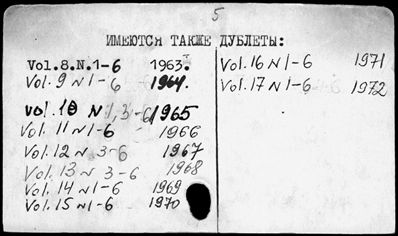 5
ИМЕЮТСЯ ТАКЖЕ ДУБЛЕТЫ:
Vol.8.N.1-6 1963.
Vol. 9 N1-6 1964.
vol. 10 N 1,3-6 1965
Vol. 11 N1-6 1966
Vol. 12 N 3-6 1967
Vol. 13 N 3-6 1968
Vol. 14 N1-6 1969
Vol. 15 N1-6 1970
Vol. 16 N1-6 1971
Vol. 17 N1-6 1972